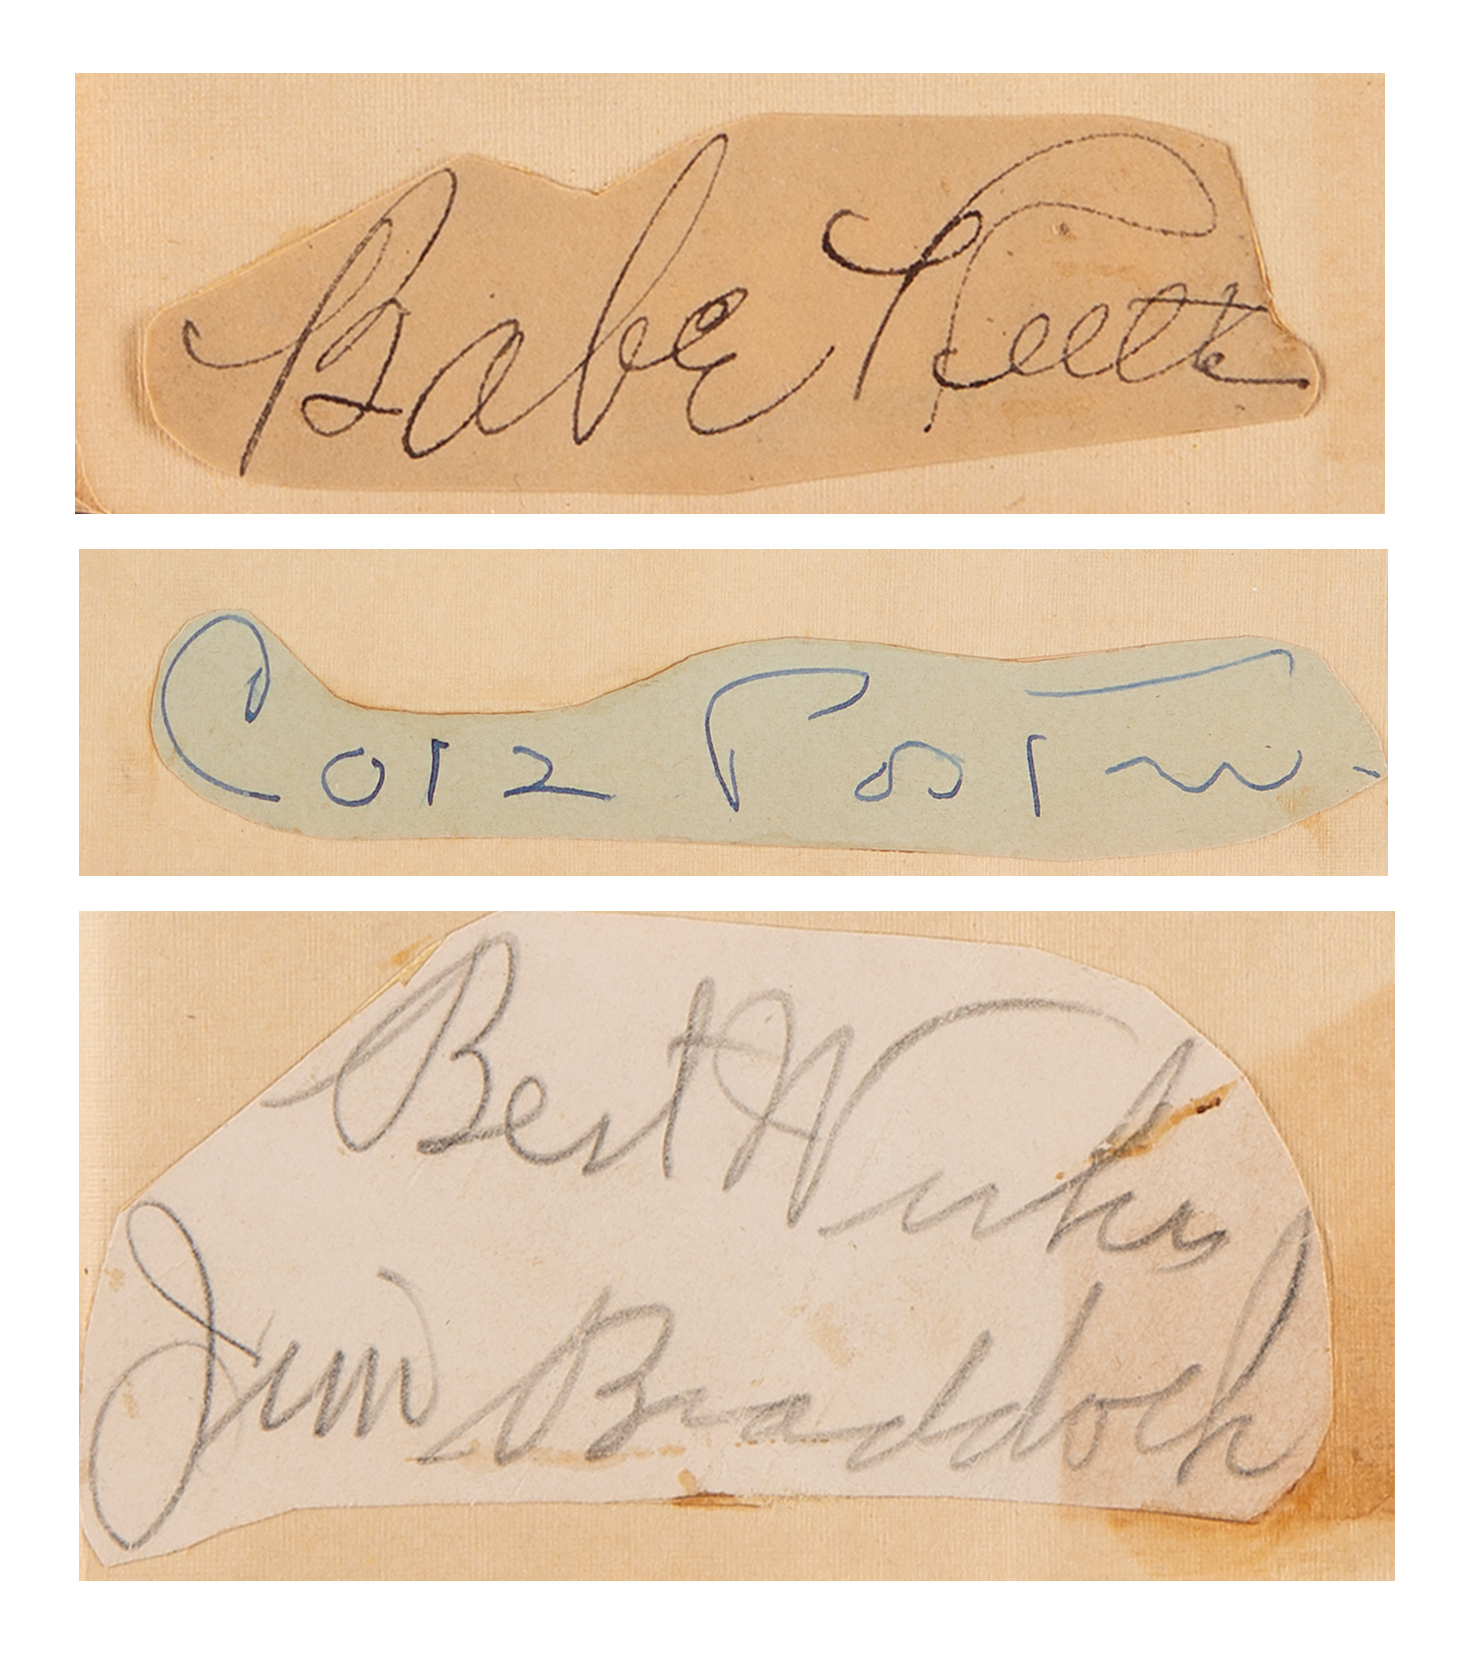 Babe Ruth
Cole Porter
Best Wishes
Jim Braddock